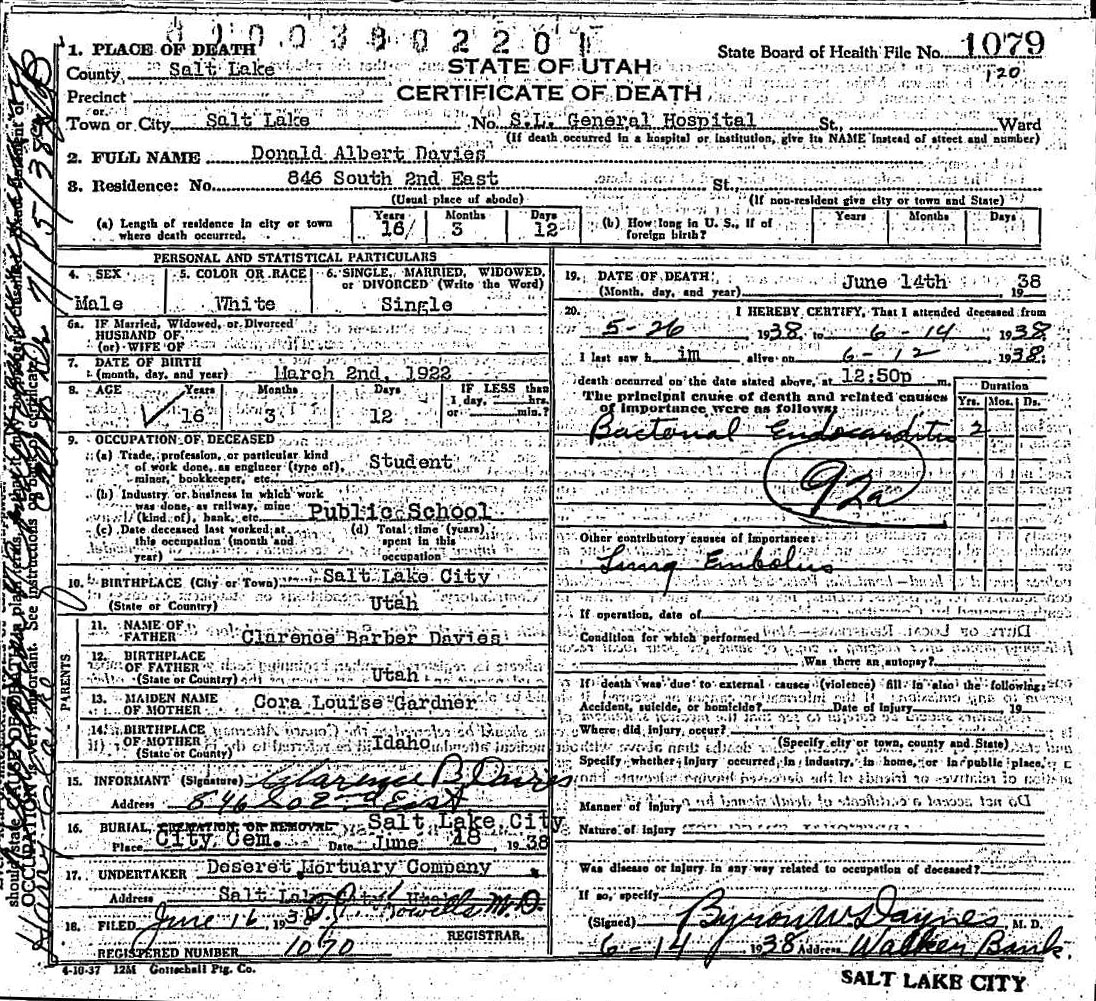 1. PLACE OF DEATH
State Board of Health File No. 1079
County, Salt Lake
STATE OF UTAH
120
Precinct
CERTIFICATE OF DEATH
or
Town or City Salt Lake No. S.L. General Hospital St., Ward
(If death occurred in a hospital or institution, give its NAME instead of street and number)
2. FULL NAME Donald Albert Davies
3. Residence: No. 846 South 2nd East St.
(Usual place of abode) (If non-resident give city or town and State)
(a) Length of residence in city or town where death occurred. Years 16 Months 3 Days 12
(b) How long in U. S., if of foreign birth? Years Months Days
PERSONAL AND STATISTICAL PARTICULARS
4. SEX 5. COLOR OR RACE 6. SINGLE, MARRIED, WIDOWED, or DIVORCED (Write the Word)
Male White Single
6a. IF Married, Widowed, or Divorced
HUSBAND OF
(or) WIFE OF
7. DATE OF BIRTH
(month, day, and year) March 2nd, 1922
8. AGE Years Months Days IF LESS than 1 day, hrs. or min.?
16 3 12
9. OCCUPATION OF DECEASED
(a) Trade, profession, or particular kind of work done, as engineer (type of), miner, bookkeeper, etc. Student
(b) Industry or business in which work was done, as railway, mine (kind of), bank, etc. Public School
(c) Date deceased last worked at this occupation (month and year)
(d) Total time (years) spent in this occupation
10. BIRTHPLACE (City or Town) Salt Lake City
(State or Country) Utah
PARENTS
11. NAME OF FATHER Clarence Barber Davies
12. BIRTHPLACE OF FATHER
(State or Country) Utah
13. MAIDEN NAME OF MOTHER Cora Louise Gardner
14. BIRTHPLACE OF MOTHER
(State or Country) Idaho
15. INFORMANT (Signature) Clarence B. Davies
Address 846 So 2nd East
16. BURIAL, CREMATION, OR REMOVAL Salt Lake City
Place City Cem. Date June 18 1938
17. UNDERTAKER Deseret Mortuary Company
Address Salt Lake City, Utah
18. FILED June 16, 1938 M.D.
REGISTRAR.
REGISTERED NUMBER 1070
4-10-37 12M Gottschall Ptg. Co.
19. DATE OF DEATH
(Month, day, and year) June 14th 1938
20. I HEREBY CERTIFY, That I attended deceased from
5-26 1938, to 6-14, 1938.
I last saw h im alive on 6-12 1938.
death occurred on the date stated above, at 12:50p m.
The principal cause of death and related causes of importance were as follows:
Duration
Yrs. Mos. Ds.
Bacterial Endocarditis 2
92a
Other contributory causes of importance:
Lung Embolus
If operation, date of
Condition for which performed
Was there an autopsy?
If death was due to external causes (violence) fill in also the following:
Accident, suicide, or homicide? Date of injury 19
Where did injury occur?
(Specify city or town, county and State)
Specify whether injury occurred in industry, in home, or in public place.
Manner of injury
Nature of injury
Was disease or injury in any way related to occupation of deceased?
If so, specify
(Signed) Byron W. Daynes M. D.
6-14 1938 Address Walker Bank.
SALT LAKE CITY